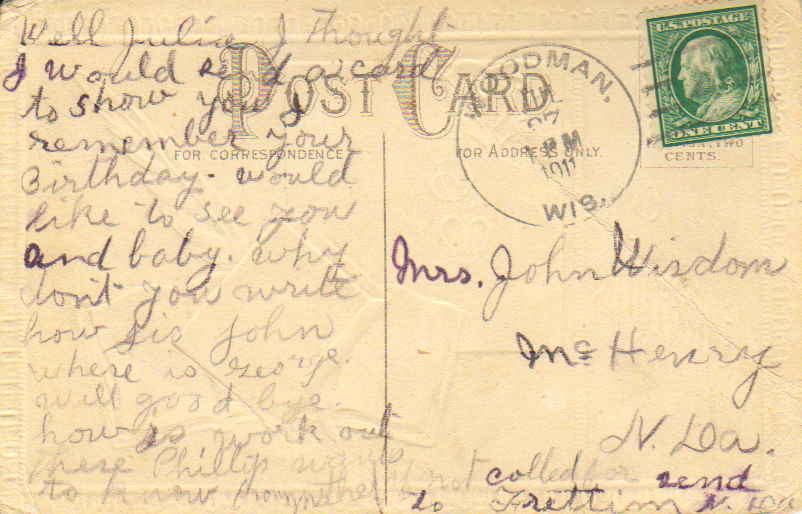 Well Julia I Thought
I would send a card
to show you I
remember your
Birthday. would
like to see you
and baby. why
dont you write
how is John
where is George.
well good bye.
how is work out
there Phillip wants
to know
POST CARD
FOR CORRESPONDENCE
FOR ADDRESS ONLY.
WOODMAN,
1911
WIS.
U.S. POSTAGE
ONE CENT
TWO
CENTS.
Mrs. John Wisdom
Mc Henry
N. Da.
if not called for send
to Frettim N. Da